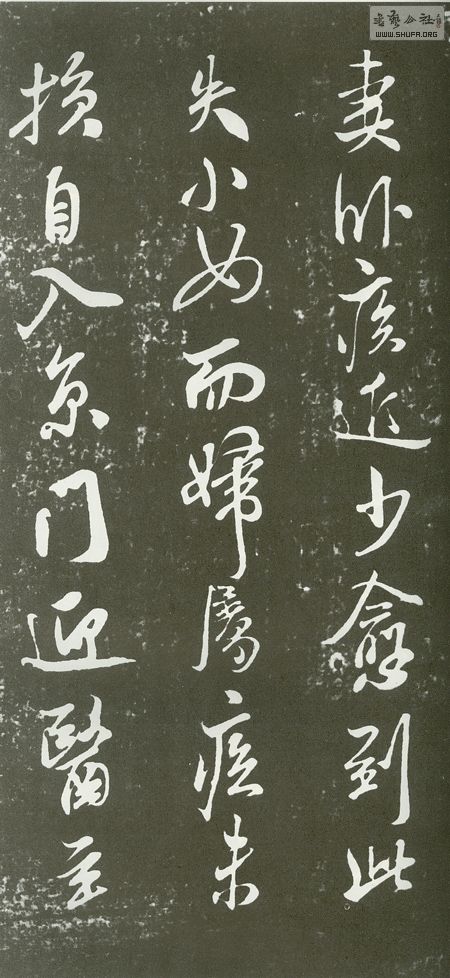 妻卧疾近少愈到此
失小女而婦屬疾未
損自入京门迎醫至
書藝公社
WWW.SHUFA.ORG